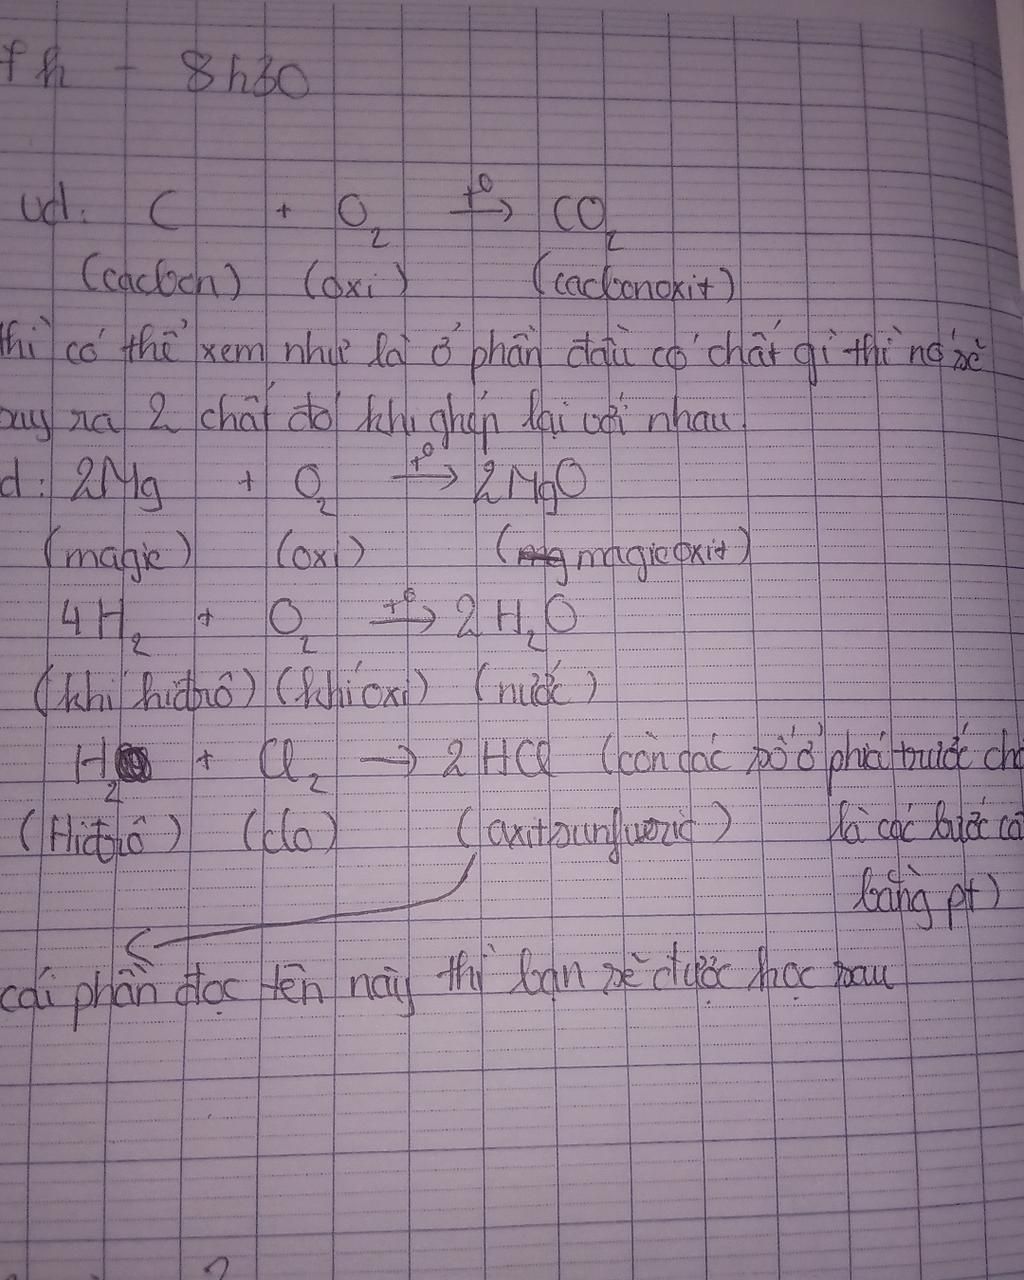 - 8h30
vd: C + O₂ t⁰→ CO₂
(cacbon) (oxi) (cacbonoxit)
thì có thể xem như là ở phần đầu có chất gì thì nó sẽ
ra 2 chất đó khi ghép lại với nhau
d: 2Mg + O₂ t⁰→ 2MgO
(magie) (oxi) (magieoxit)
4H₂ + O₂ t⁰→ 2H₂O
(khí hiđrô) (khí oxi) (nước)
H₂ + Cl₂ → 2HCl (còn các số ở phía trước ch
(Hiđrô) (clo) (axitsunfuoric) là các bước câ
bằng pt)
cái phần đọc tên này thì bạn sẽ được học sau